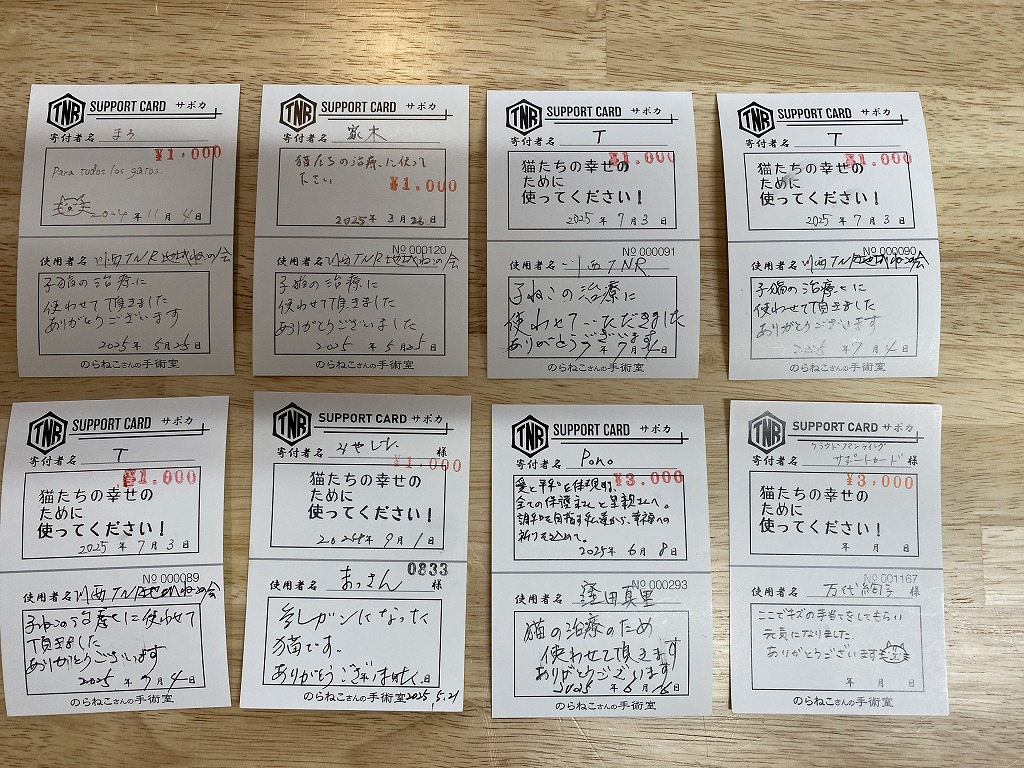 TNR SUPPORT CARD サポカ
寄付者名 まろ
¥1,000
Para todos los gatos.
2024年 11月 4日
使用者名 川西TNR地域ねこの会
子猫の治療に
使わせて頂きました
ありがとうございます
2025年 5月25日
のらねこさんの手術室
TNR SUPPORT CARD サポカ
寄付者名 家木
猫たちの治療に使って
ださい
¥1,000
2025年 3月26日
No 000120
使用者名 川西TNR地域ねこの会
子猫の治療に
使わせて頂きました
ありがとうございました
2025年 5月25日
のらねこさんの手術室
TNR SUPPORT CARD サポカ
寄付者名 T
¥1,000
猫たちの幸せの
ために
使ってください!
2025年 7月 3日
No 000091
使用者名 川西TNR
子ねこの治療に
使わせていただきました
ありがとうございます
7月 4日
のらねこさんの手術室
TNR SUPPORT CARD サポカ
寄付者名 T
¥1,000
猫たちの幸せの
ために
使ってください!
2025年 7月 3日
No 000090
使用者名 川西TNR地域ねこの会
子猫の治療に
使わせて頂きました
ありがとうございます
2025年 7月 4日
のらねこさんの手術室
TNR SUPPORT CARD サポカ
寄付者名 T
¥1,000
猫たちの幸せの
ために
使ってください!
2025年 7月 3日
No 000089
使用者名 川西TNR地域ねこの会
子ねこの治療に使わせて
頂きました
ありがとうございます
2025年 7月 4日
のらねこさんの手術室
TNR SUPPORT CARD サポカ
寄付者名 みやした 様
¥1,000
猫たちの幸せの
ために
使ってください!
2024年 9月 1日
0833
使用者名 まっさん 様
乳ガンになった
猫です。
ありがとうございました。日
のらねこさんの手術室 2025,5.21
TNR SUPPORT CARD サポカ
寄付者名 Pono
¥3,000
愛と平和を体現する、
全ての保護主さんと里親さんへ。
調和を目指す私達から、幸福への
祈りを込めて。
2025年 6月 8日
No 000293
使用者名 窪田真里
猫の治療のため
使わせて頂きます
ありがとうございます
2025年 6月16日
のらねこさんの手術室
TNR SUPPORT CARD サポカ
クラウドファンディング
寄付者名 サポートカード 様
¥3,000
猫たちの幸せの
ために
使ってください!
年 月 日
No 001167
使用者名 万代絢子 様
ここでキズの手当てをしてもらい
元気になりました.
ありがとうございます
年 月 日
のらねこさんの手術室